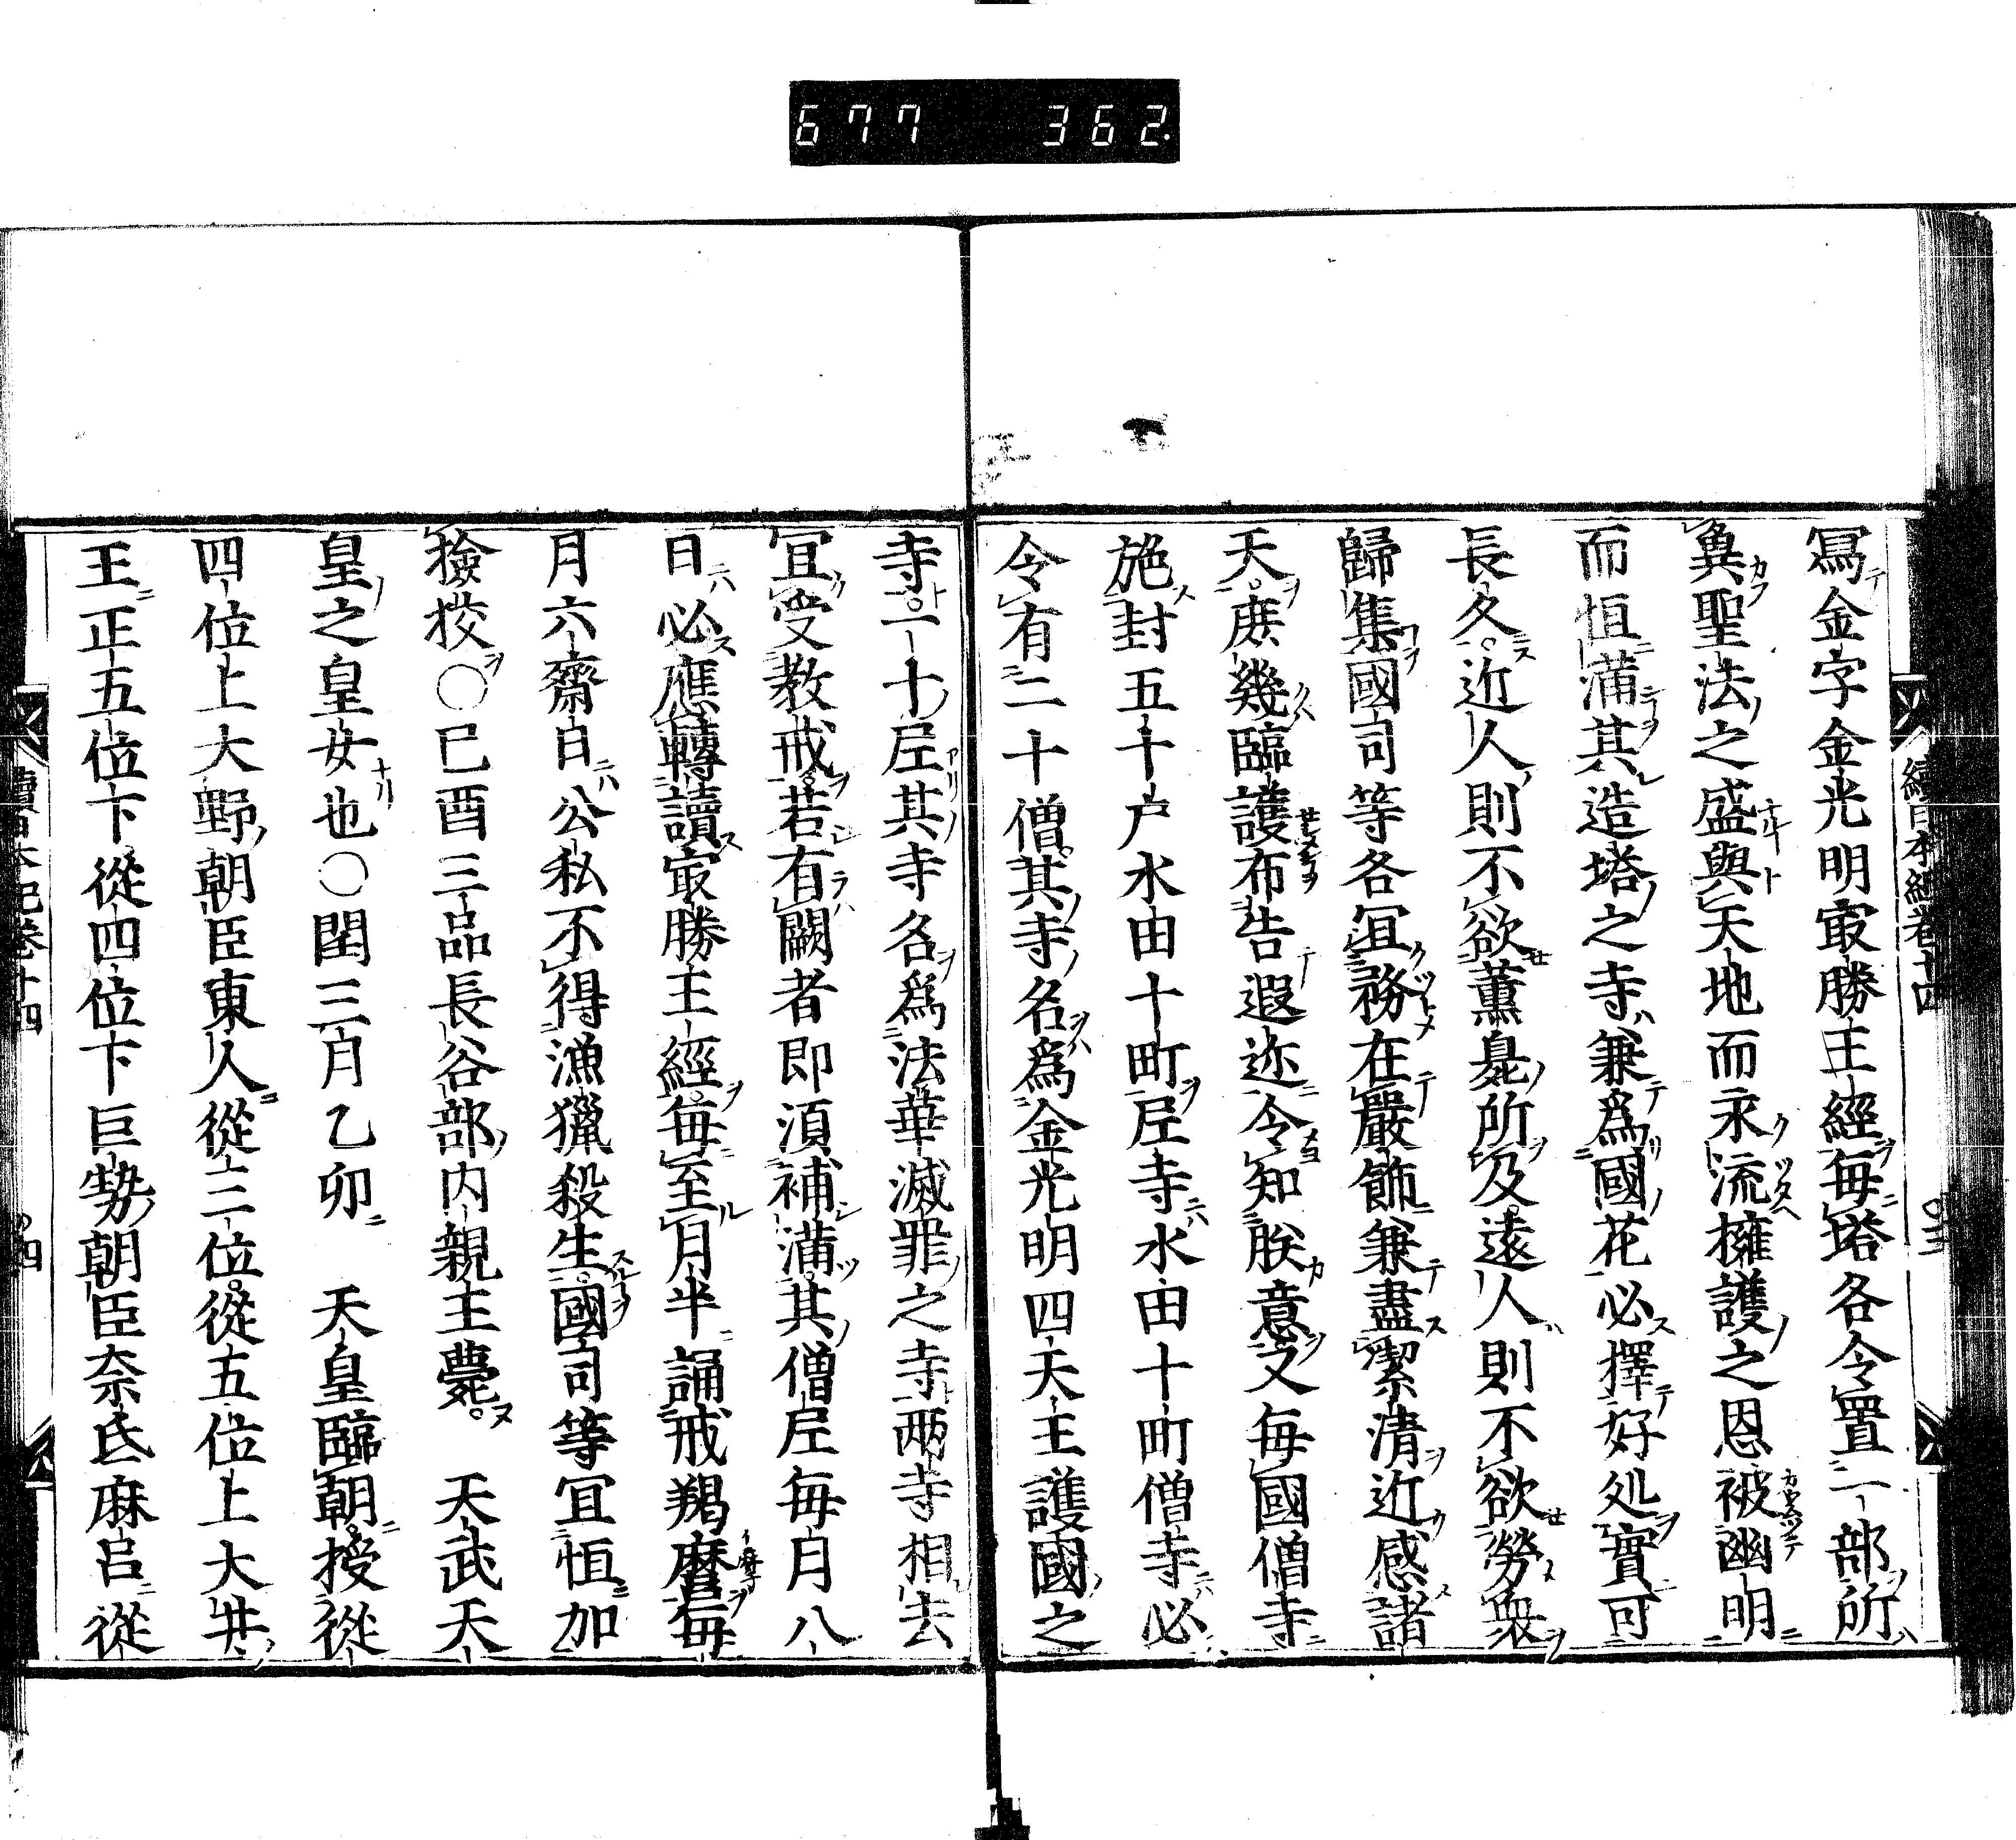 677 362.
續日本紀卷十四 〇三
寫金字金光明㝡勝王經毎塔各令置一部所
兾聖法之盛與天地而永流擁護之恩被幽明
而恒滿其造塔之寺兼爲國花必擇好処實可
長久。近人則不欲薫臰所及遠人則不欲勞衆
歸集國司等各宜務在嚴飾兼盡潔清近感諸
天。庶幾臨護布告遐迩令知朕意又毎國僧寺
施封五十戸水田十町尼寺水田十町僧寺必
令有二十僧。其寺名爲金光明四天王護國之
寺。一十尼其寺名爲法華滅罪之寺两寺相去
宜受教戒。若有闕者即須補滿。其僧尼毎月八
日必應轉讀㝡勝王經毎至月半誦戒羯磨毎
月六齋日公私不得漁獵殺生。國司等宜恒加
撿挍〇巳酉三品長谷部内親王薨。天武天
皇之皇女也〇閏三月乙卯 天皇臨朝授從
四位上大野朝臣東人從三位。從五位上大井
王正五位下從四位下巨勢朝臣奈氐麻呂從
續日本紀卷十四 〇四